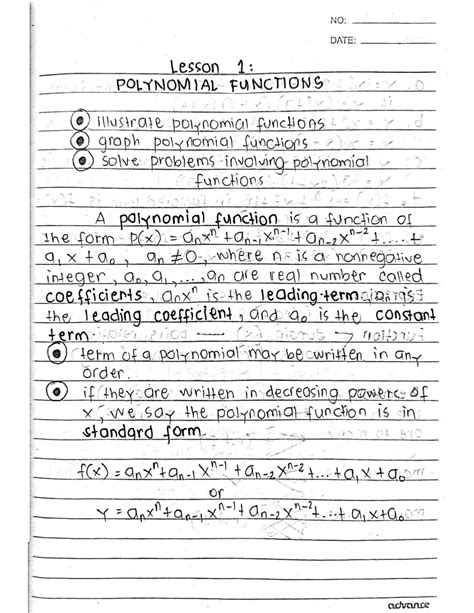 NO:
DATE:
Lesson 1:
POLYNOMIAL FUNCTIONS
illustrate polynomial functions
graph polynomial functions
solve problems involving polynomial
functions
A polynomial function is a function of
the form P(x) = aₙxⁿ + aₙ₋₁xⁿ⁻¹ + aₙ₋₂xⁿ⁻² + .... +
a₁x + a₀, aₙ ≠ 0, where n is a nonnegative
integer, a₀, a₁, ..., aₙ are real number called
coefficients, aₙxⁿ is the leading term, aₙ is
the leading coefficient, and a₀ is the constant
term.
term of a polynomial may be written in any
order.
if they are written in decreasing powers of
x, we say the polynomial function is in
standard form.
f(x) = aₙxⁿ + aₙ₋₁xⁿ⁻¹ + aₙ₋₂xⁿ⁻² + ... + a₁x + a₀
or
Y = aₙxⁿ + aₙ₋₁xⁿ⁻¹ + aₙ₋₂xⁿ⁻² + ... + a₁x + a₀
advance